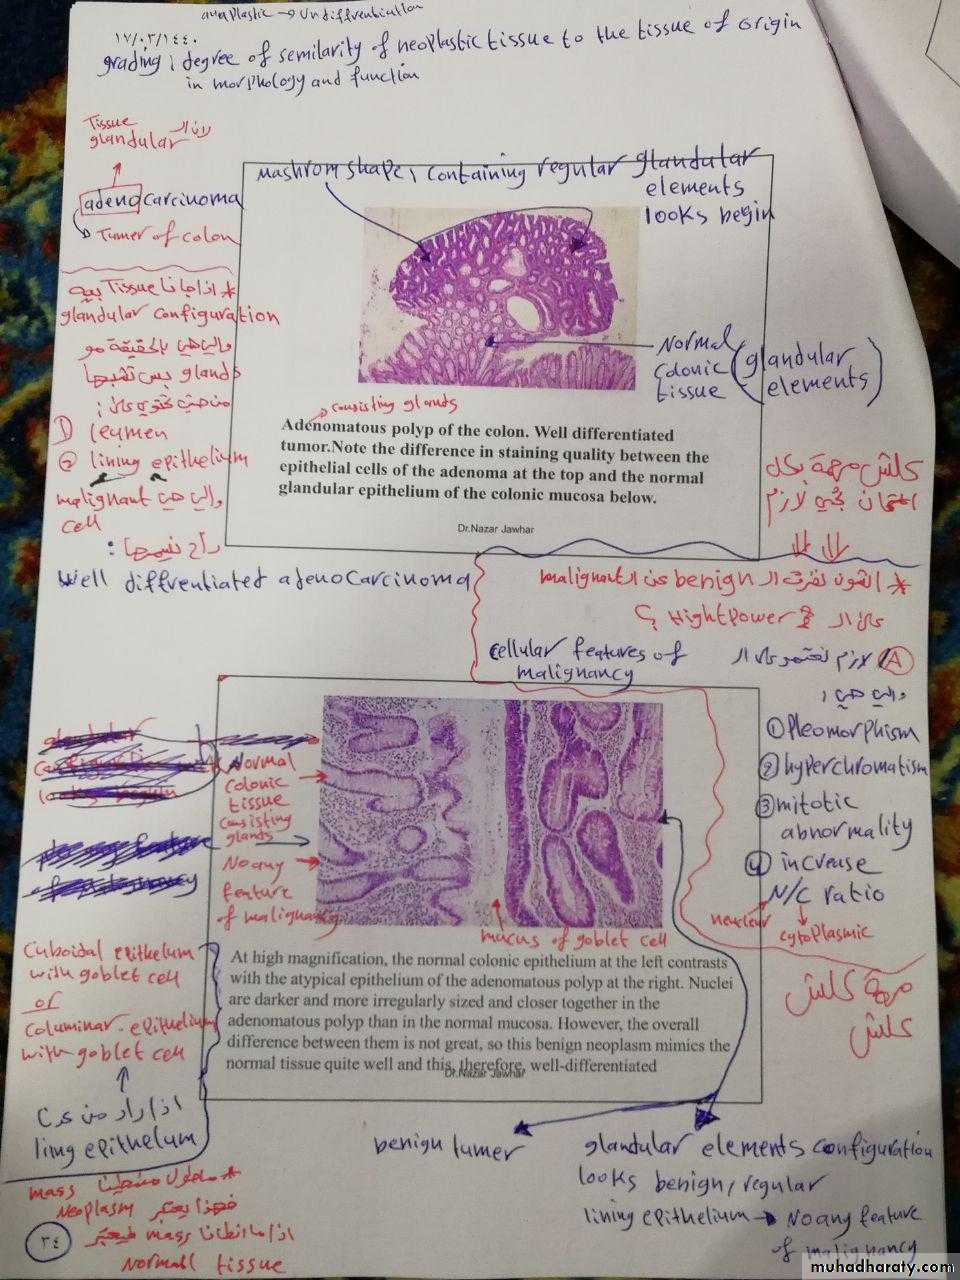 anaplastic → Undiffrentiation
١٧/٠٢/١٤٤٠
grading ; degree of semilarity of neoplastic tissue to the tissue of origin
in morphology and function
Tissue
glandular
adenocarcinoma
Tumer of colon
* اذا جانا Tissue بيه
glandular configuration
والي هي بالحقيقة مو
glands بس تشبهها
من حيث تحتوي على :
① leumen
② lining epithelium
والي هي malignant
cell
راح نسميها :
Well diffrentiated adenocarcinoma
mashrom shape, containing regular glandular
elements
looks begin
Normal
colonic
tissue
(glandular
elements)
consisting glands
Adenomatous polyp of the colon. Well differentiated
tumor.Note the difference in staining quality between the
epithelial cells of the adenoma at the top and the normal
glandular epithelium of the colonic mucosa below.
Dr.Nazar Jawhar
كلش مهمة بكل
امتحان تجي لازم
* اشلون نفرق الـ benign عن الـ malignant
على الـ HightPower ؟
Ⓐ لازم نعتمد على الـ
cellular features of
malignancy
والي هي ;
① Pleomorphism
② hyperchromatism
③ mitotic
abnormality
④ increase
N/C ratio
nuclear
cytoplasmic
مهمة كلش
كلش
Normal
colonic
tissue
consisting
glands
No any
feature
of malignancy
mucus of goblet cell
At high magnification, the normal colonic epithelium at the left contrasts
with the atypical epithelium of the adenomatous polyp at the right. Nuclei
are darker and more irregularly sized and closer together in the
adenomatous polyp than in the normal mucosa. However, the overall
difference between them is not great, so this benign neoplasm mimics the
normal tissue quite well and this, therefore, well-differentiated
Dr.Nazar Jawhar
Cuboidal epithelum
with goblet cell
or
columinar epithelium
with goblet cell
اذا راد من عدنا
ling epithelum
benign tumer
glandular elements configuration
looks benign, regular
lining epithelium → No any feature
of malignancy
mass
فهذا يعتبر Neoplasm
اذا ما انطانا mass فيعتبر
Normall tissue
٣٤
muhadharaty.com